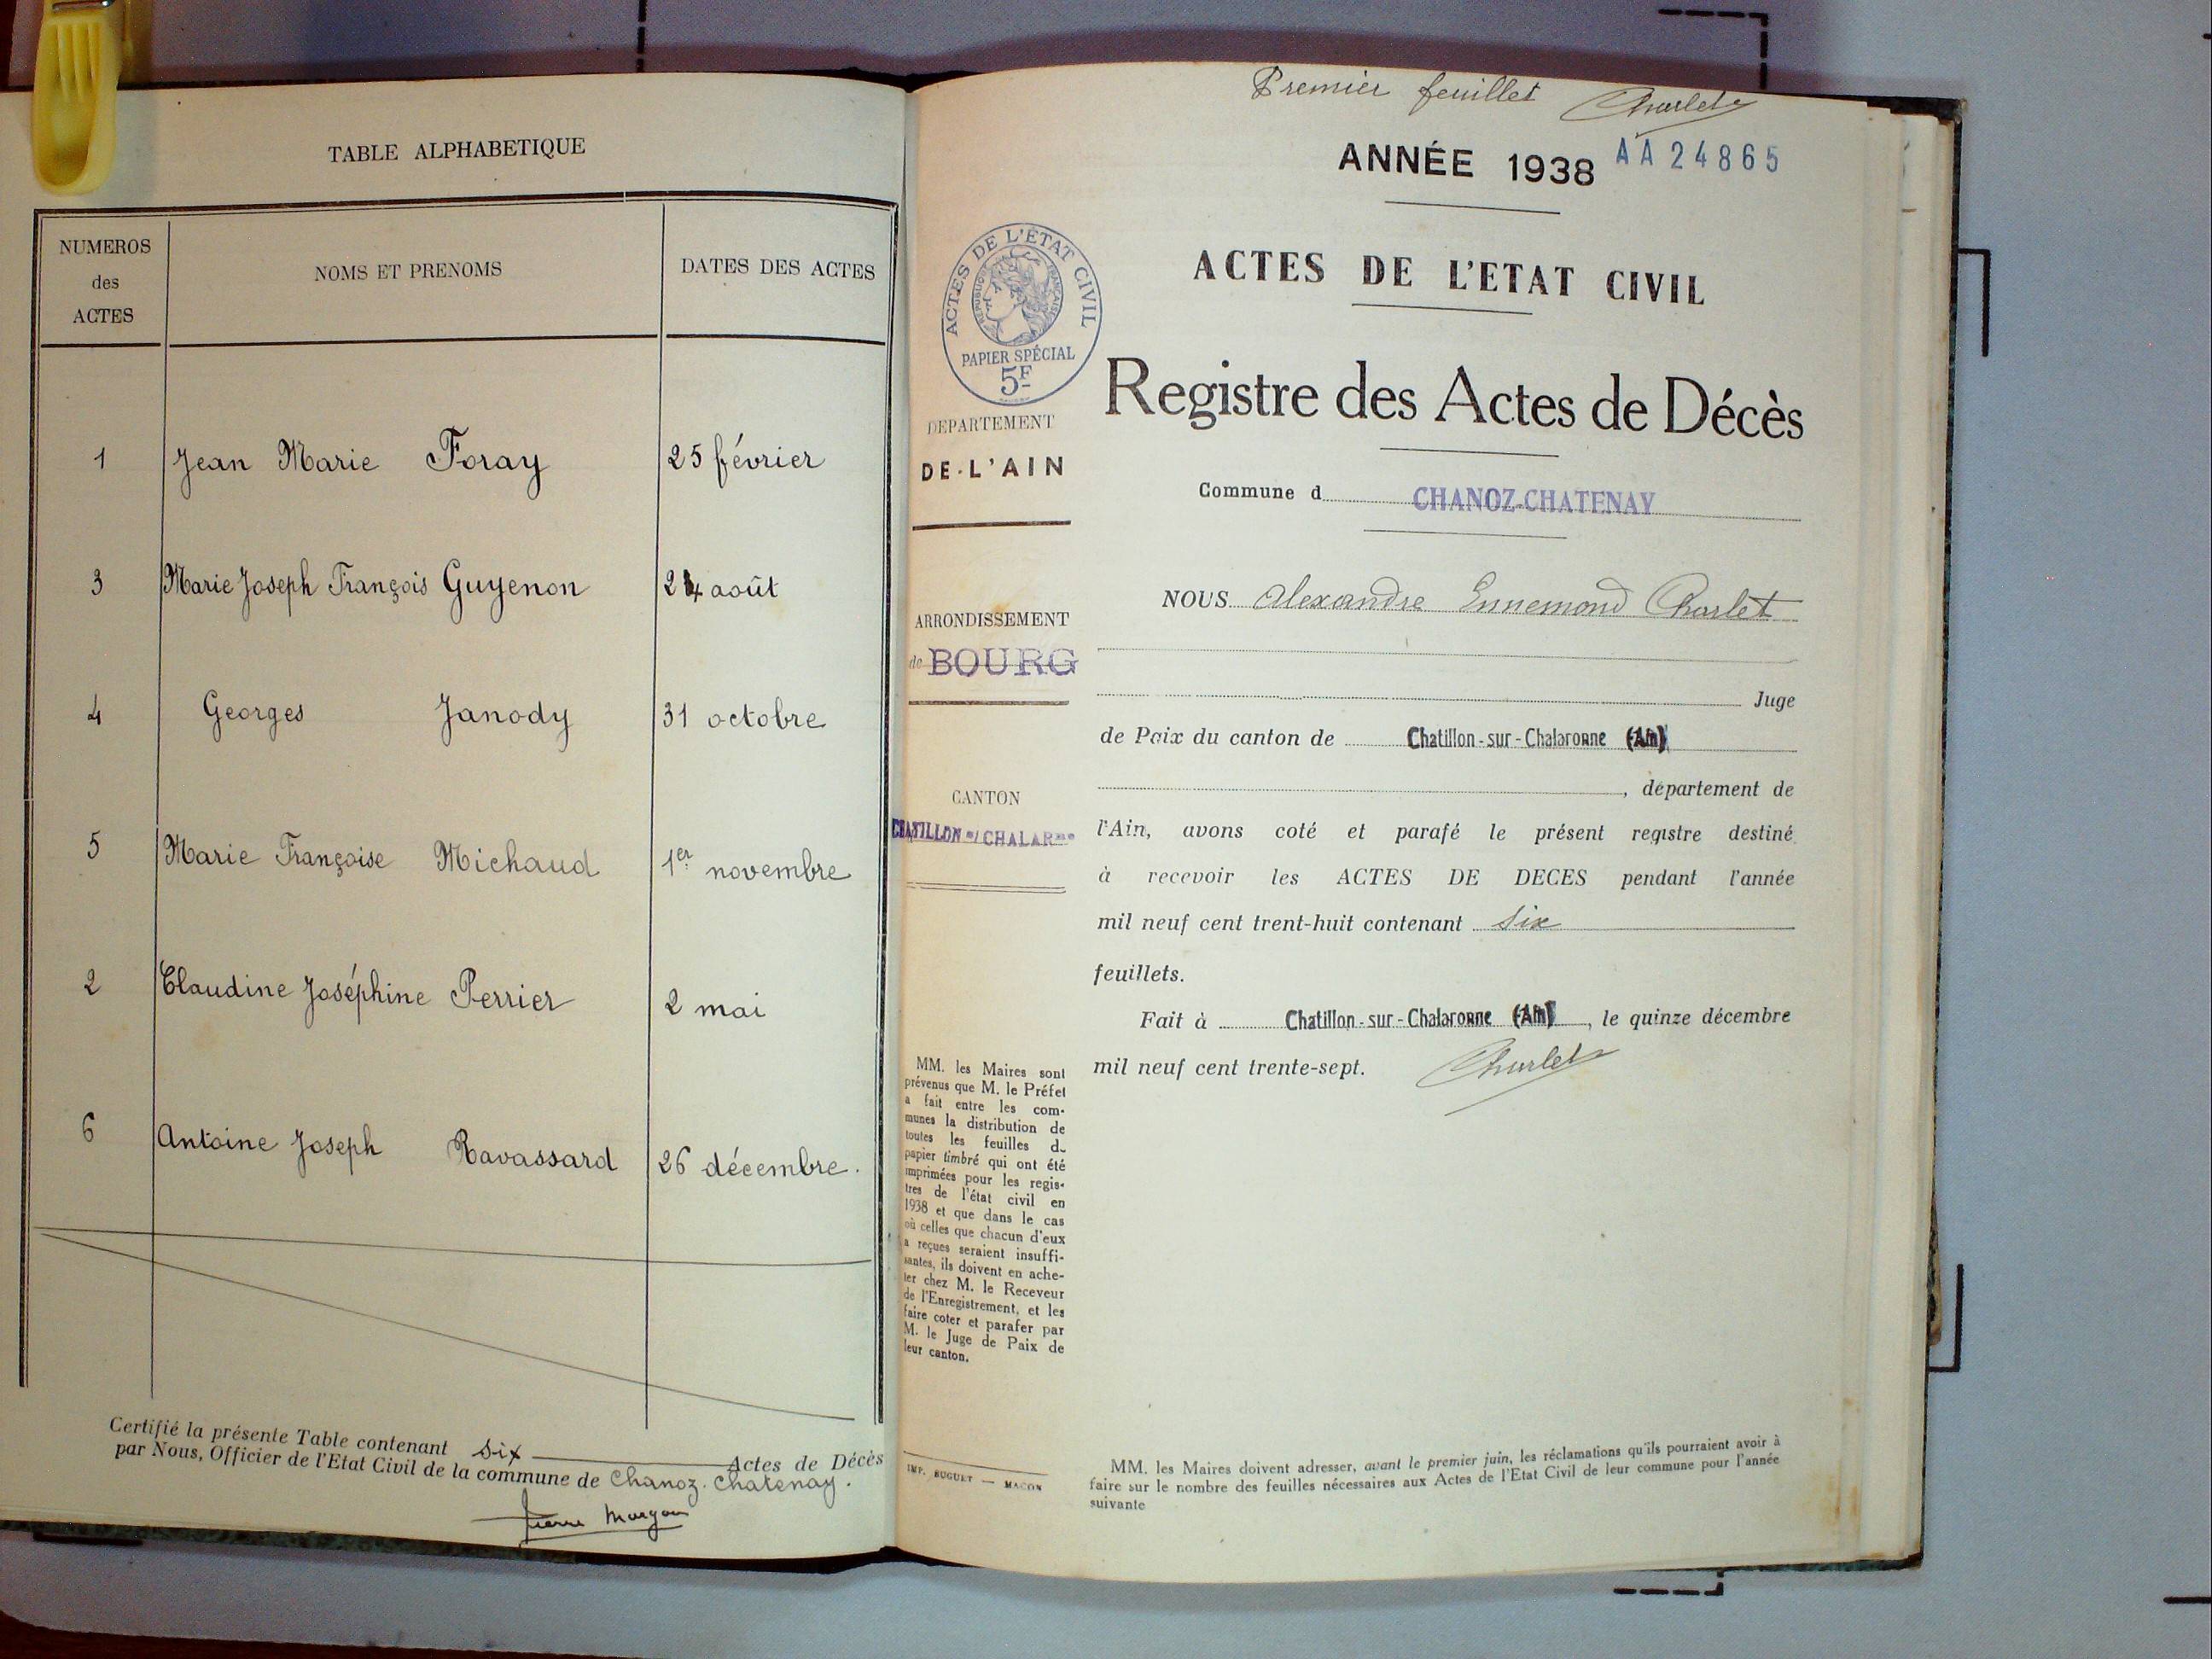 TABLE ALPHABETIQUE
NUMEROS
des
ACTES
NOMS ET PRENOMS
DATES DES ACTES
1 Jean Marie Foray 25 février
3 Marie Joseph François Guyenon 24 août
4 Georges Janody 31 octobre
5 Marie Françoise Michaud 1er novembre
2 Claudine Joséphine Perrier 2 mai
6 Antoine Joseph Ravassard 26 décembre.
Certifié la présente Table contenant six Actes de Décès
par Nous, Officier de l'Etat Civil de la commune de Chanoz-Chatenay.
Pierre
Premier feuillet Charlet
ANNÉE 1938 AA24865
ACTES DE L'ETAT CIVIL
ACTES DE L'ÉTAT CIVIL
REPUBLIQUE FRANÇAISE
PAPIER SPÉCIAL
5F
Registre des Actes de Décès
DEPARTEMENT
DE L'AIN
Commune d CHANOZ-CHATENAY
ARRONDISSEMENT
de BOURG
CANTON
CHATILLON s/ CHALARnne
NOUS Alexandre Ennemond Charlet
Juge
de Paix du canton de Chatillon-sur-Chalaronne (Ain)
, département de
l'Ain, avons coté et parafé le présent registre destiné
à recevoir les ACTES DE DECES pendant l'année
mil neuf cent trent-huit contenant six
feuillets.
Fait à Chatillon-sur-Chalaronne (Ain), le quinze décembre
mil neuf cent trente-sept. Charlet
MM. les Maires sont
prévenus que M. le Préfet
a fait entre les com-
munes la distribution de
toutes les feuilles d
papier timbré qui ont été
imprimées pour les regis-
tres de l'état civil en
1938 et que dans le cas
où celles que chacun d'eux
a reçues seraient insuffi-
santes, ils doivent en ache-
ter chez M. le Receveur
de l'Enregistrement, et les
faire coter et parafer par
M. le Juge de Paix de
leur canton.
IMP. BUGUET — MACON
MM. les Maires doivent adresser, avant le premier juin, les réclamations qu'ils pourraient avoir à
faire sur le nombre des feuilles nécessaires aux Actes de l'Etat Civil de leur commune pour l'année
suivante